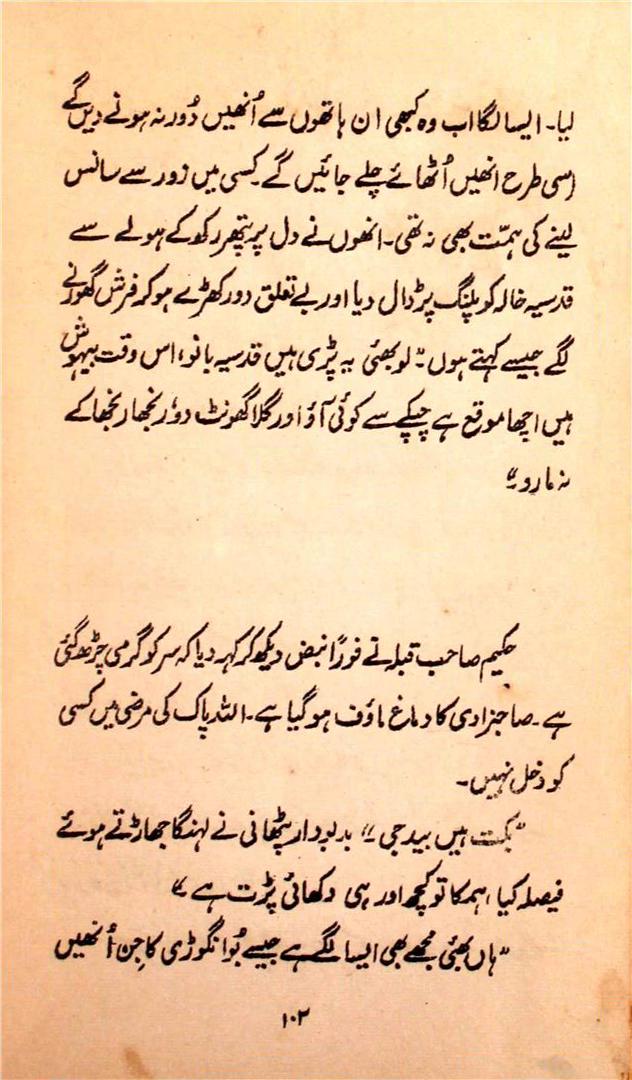 لیا۔ ایسا لگا اب وہ کبھی ان ہاتھوں سے اُنھیں دُور نہ ہونے دیں گے
اسی طرح انھیں اُٹھائے چلے جائیں گے۔ کسی میں زور سے سانس
لینے کی ہمّت بھی نہ تھی۔ انھوں نے دل پر پتھر رکھ کے ہولے سے
قدسیہ خالہ کو پلنگ پر ڈال دیا اور بے تعلق دور کھڑے ہو کر فرش گھورنے
لگے جیسے کہتے ہوں۔ "لو بھئی یہ پڑی ہیں قدسیہ بانو، اس وقت بیہوش
ہیں اچھا موقع ہے چپکے سے کوئی آؤ اور گلا گھونٹ دو، رنجھا رنجھا کے
نہ مارو۔"
حکیم صاحب قبلہ نے فورًا نبض دیکھ کر کہہ دیا کہ سر کو گرمی چڑھ گئی
ہے۔ صاحبزادی کا دماغ ماؤف ہو گیا ہے۔ اللہ پاک کی مرضی میں کسی
کو دخل نہیں۔
"بکت ہیں بیدجی۔" بدبودار پٹھانی نے لہنگا جھاڑتے ہوئے
فیصلہ کیا، ہمکا تو کچھ اور ہی دکھائی پڑت ہے۔"
"ہاں بھئی مجھے بھی ایسا لگے ہے جیسے بُوا نگوڑی کا جِن اُنھیں
۱۰۲